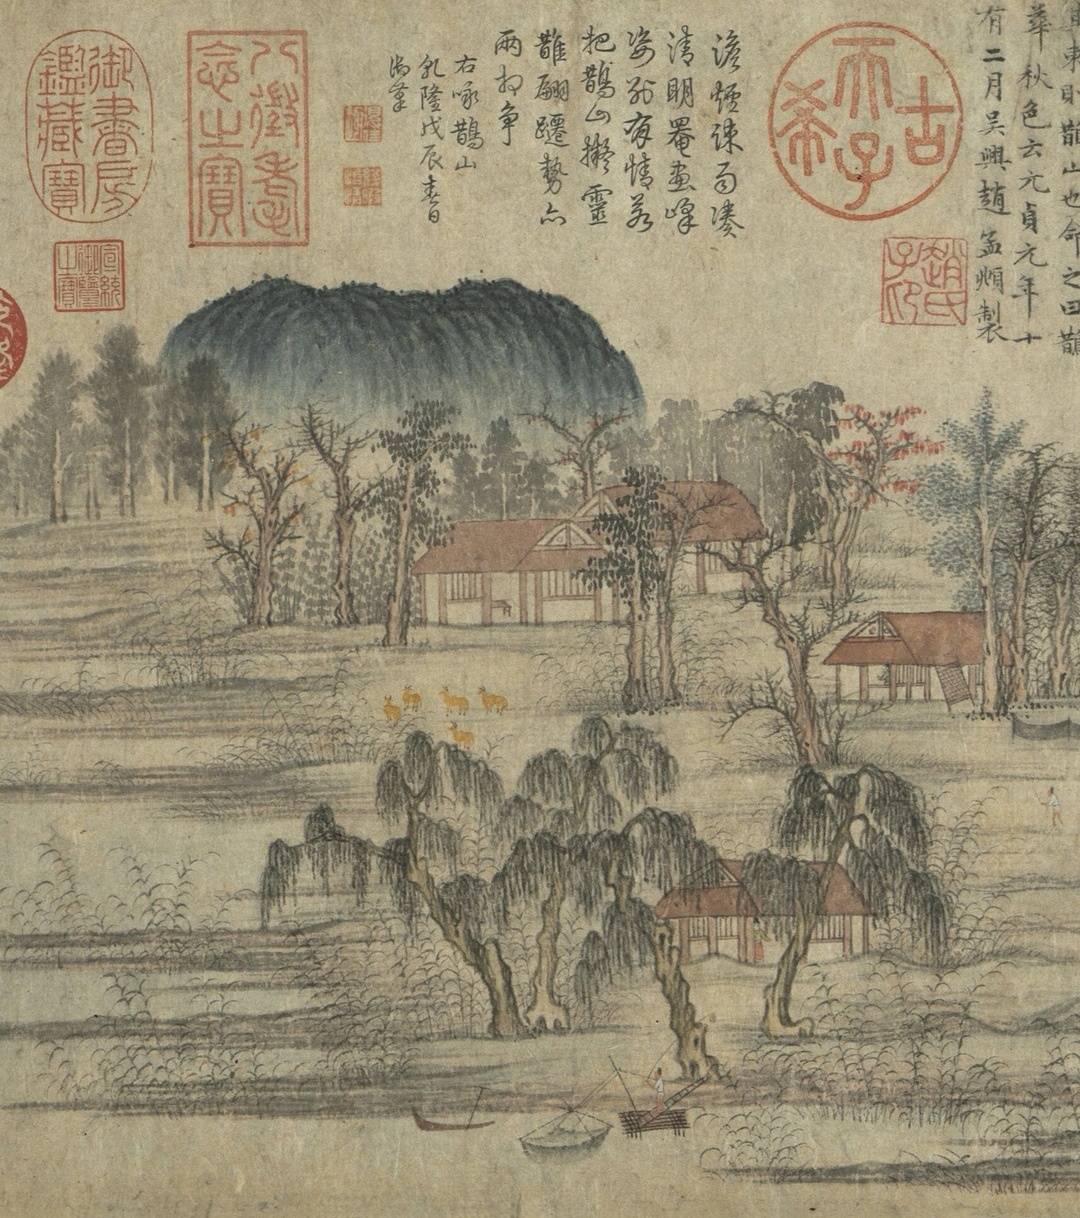 其東則鵲山也命之曰鵲
華秋色云元貞元年十
有二月吳興趙孟頫製
古希天子
趙氏子印
澹煙疎雨湊
清明罨畫峰
姿有情若
把鵲山擬靈
䧿翩躚勢亦
兩相爭
右咏鵲山
乾隆戊辰春日
御筆
八徵耄念之寶
御書房鑑藏寶
宣統御覽之寶